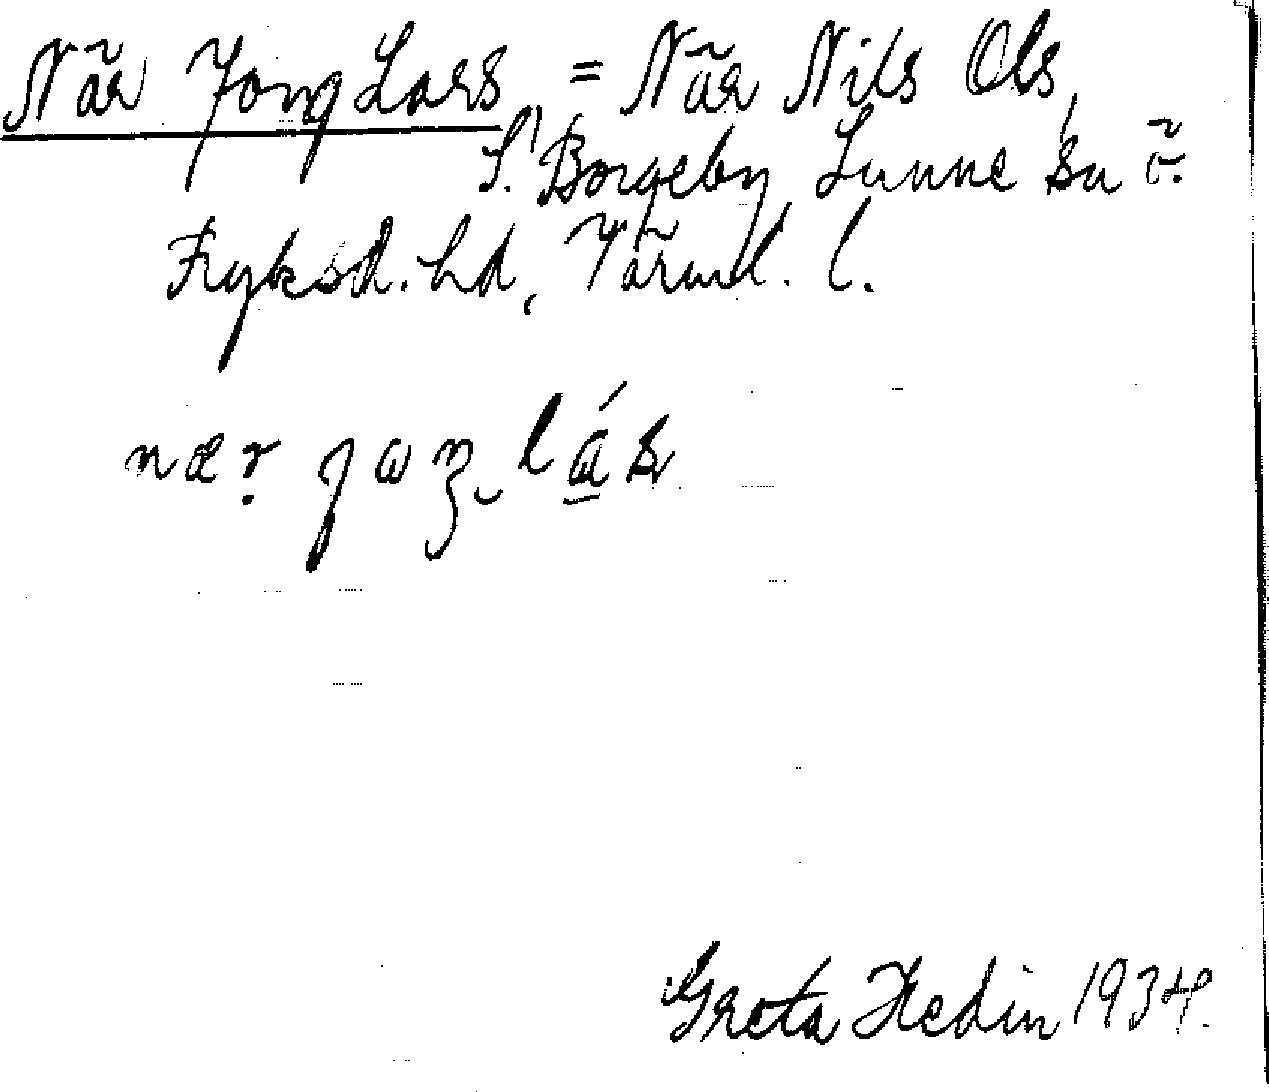 När Jong Lars = När Nils Ols,
S. Borgeby, Sunne sn ö.
Fryksd. hd, Värml. l.
nær jɷŋ lás
Greta Hedin 1934.